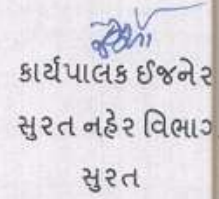 કાર્યપાલક ઈજનેર
સુરત નહેર વિભાગ
સુરત